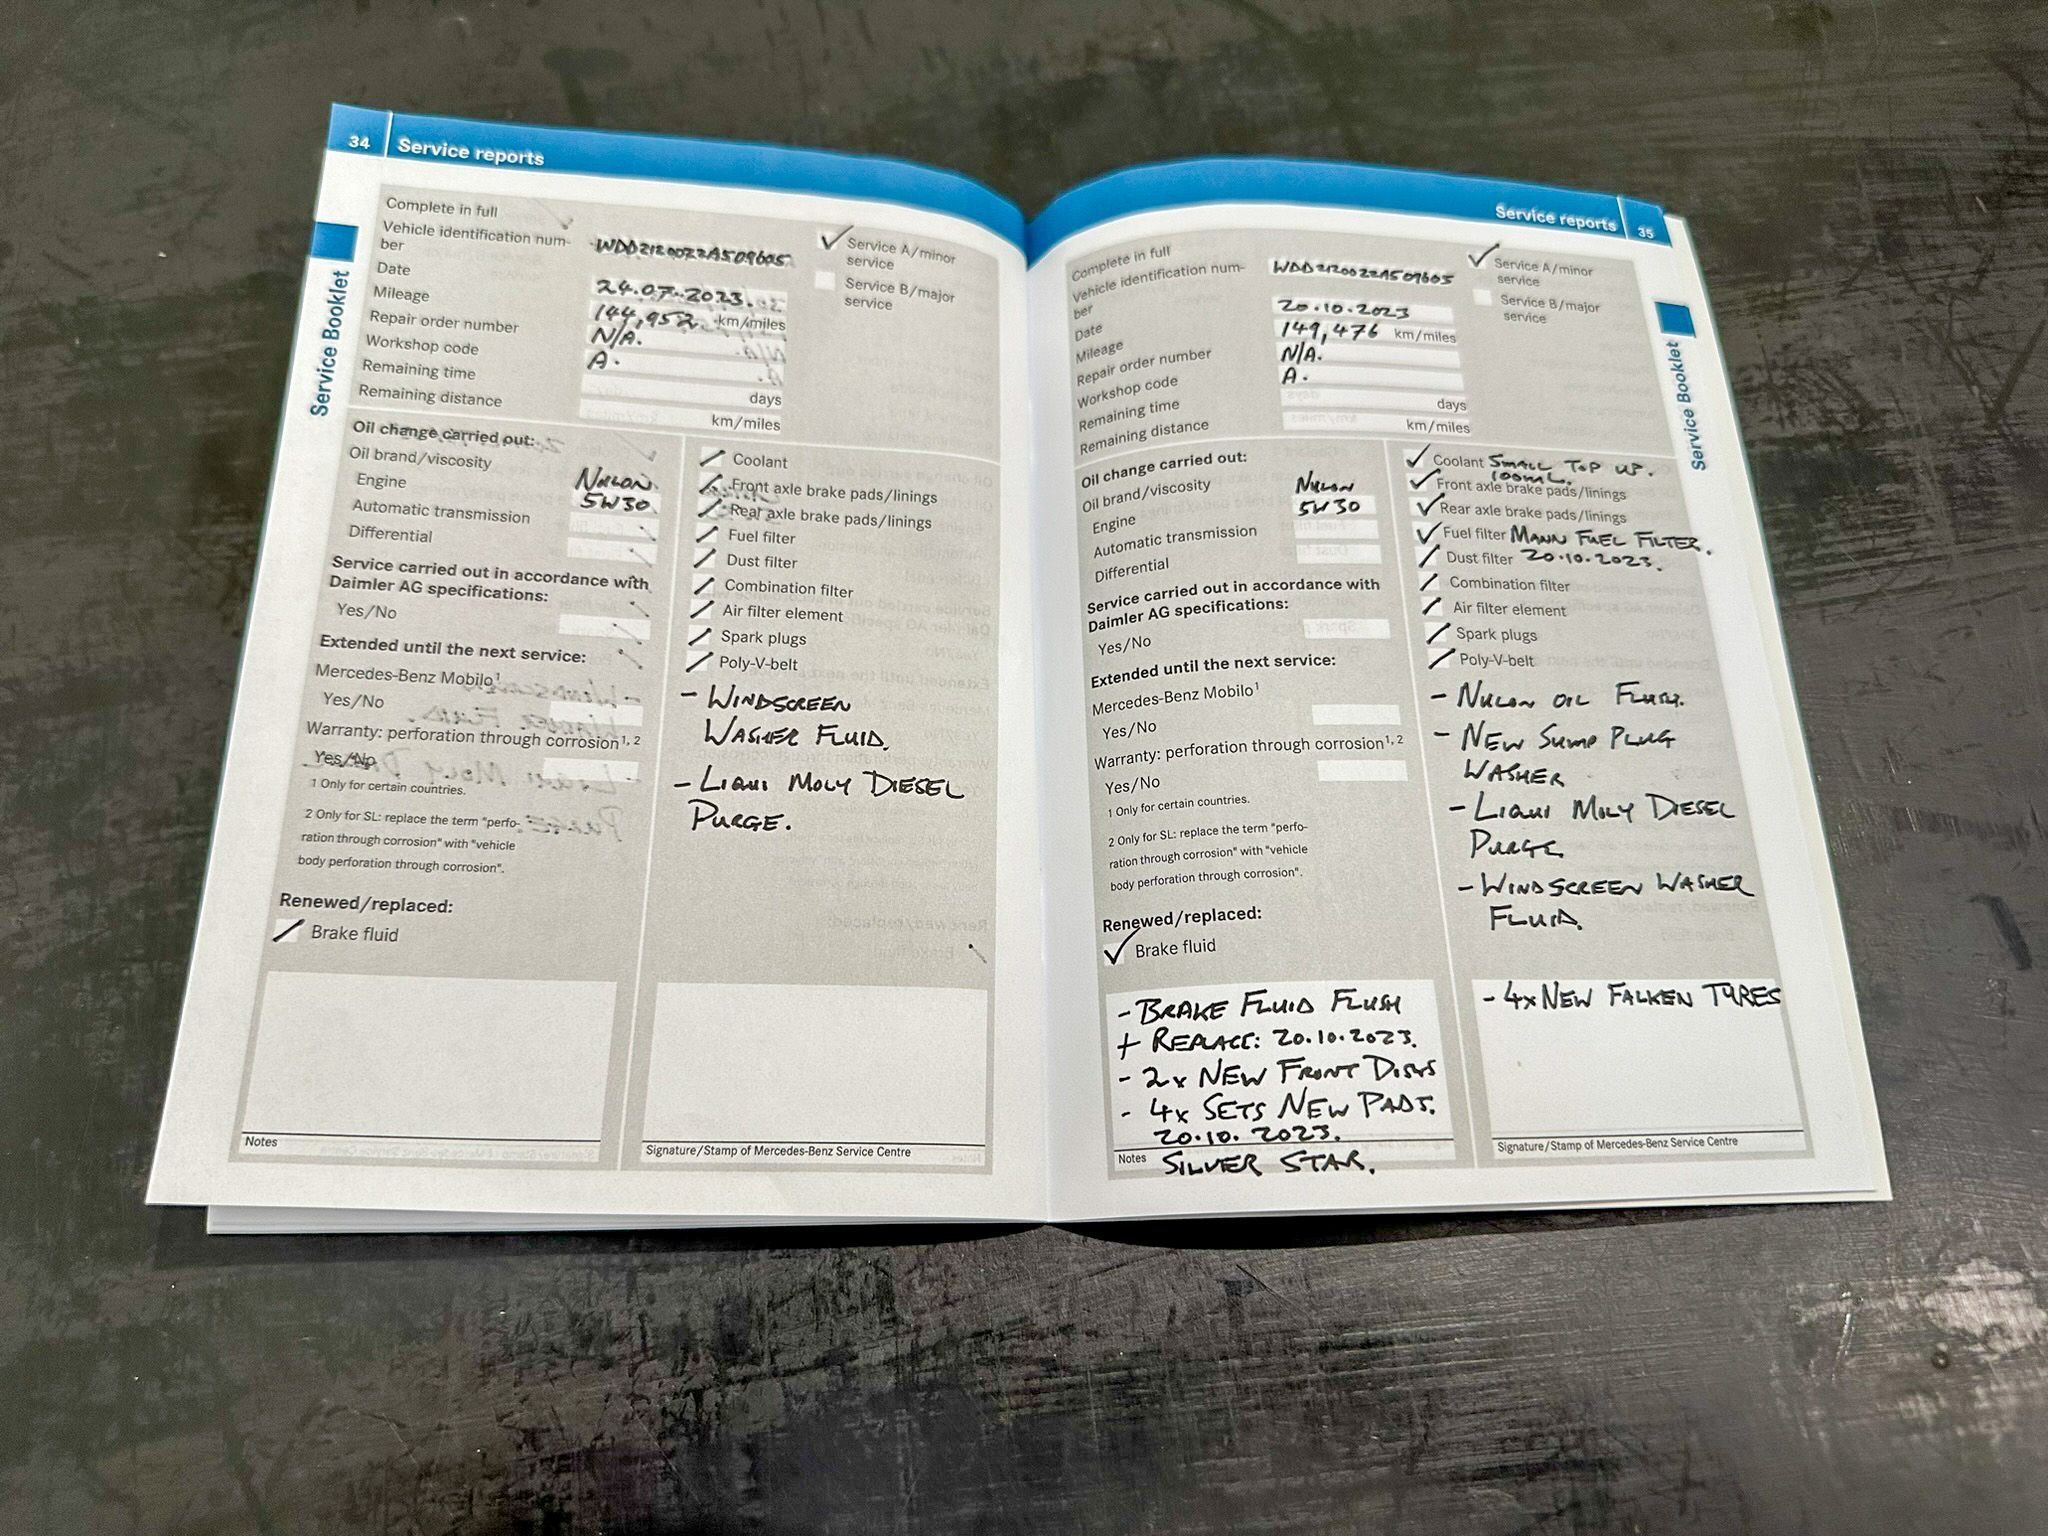 34 Service reports
Service Booklet
Complete in full
Vehicle identification num-
ber
WDD2120022A509605
Date 24.07.2023.
Mileage 144,952 km/miles
Repair order number N/A.
Workshop code A.
Remaining time days
Remaining distance km/miles
Service A/minor
service
Service B/major
service
Oil change carried out:
Oil brand/viscosity
Engine NULON 5W30
Automatic transmission
Differential
Service carried out in accordance with
Daimler AG specifications:
Yes/No
Extended until the next service:
Mercedes-Benz Mobilo1
Yes/No
Warranty: perforation through corrosion1, 2
Yes/No
1 Only for certain countries.
2 Only for SL: replace the term "perfo-
ration through corrosion" with "vehicle
body perforation through corrosion".
Renewed/replaced:
Brake fluid
Coolant
Front axle brake pads/linings
Rear axle brake pads/linings
Fuel filter
Dust filter
Combination filter
Air filter element
Spark plugs
Poly-V-belt
- WINDSCREEN
WASHER FLUID.
- LIQUI MOLY DIESEL
PURGE.
Notes
Signature/Stamp of Mercedes-Benz Service Centre
Service reports 35
Service Booklet
Complete in full
Vehicle identification num-
ber
WDD2120022A509605
Date 20.10.2023
Mileage 149,476 km/miles
Repair order number N/A.
Workshop code A.
Remaining time days
Remaining distance km/miles
Service A/minor
service
Service B/major
service
Oil change carried out:
Oil brand/viscosity
Engine NULON 5W30
Automatic transmission
Differential
Service carried out in accordance with
Daimler AG specifications:
Yes/No
Extended until the next service:
Mercedes-Benz Mobilo1
Yes/No
Warranty: perforation through corrosion1, 2
Yes/No
1 Only for certain countries.
2 Only for SL: replace the term "perfo-
ration through corrosion" with "vehicle
body perforation through corrosion".
Renewed/replaced:
Brake fluid
Coolant SMALL TOP UP.
100ML.
Front axle brake pads/linings
Rear axle brake pads/linings
Fuel filter MANN FUEL FILTER.
Dust filter 20.10.2023.
Combination filter
Air filter element
Spark plugs
Poly-V-belt
- NULON OIL FLUSH.
- NEW SUMP PLUG
WASHER
- LIQUI MOLY DIESEL
PURGE
- WINDSCREEN WASHER
FLUID.
- BRAKE FLUID FLUSH
+ REPLACE: 20.10.2023.
- 2x NEW FRONT DISKS
- 4x SETS NEW PADS.
20.10.2023.
Notes SILVER STAR.
- 4x NEW FALKEN TYRES
Signature/Stamp of Mercedes-Benz Service Centre